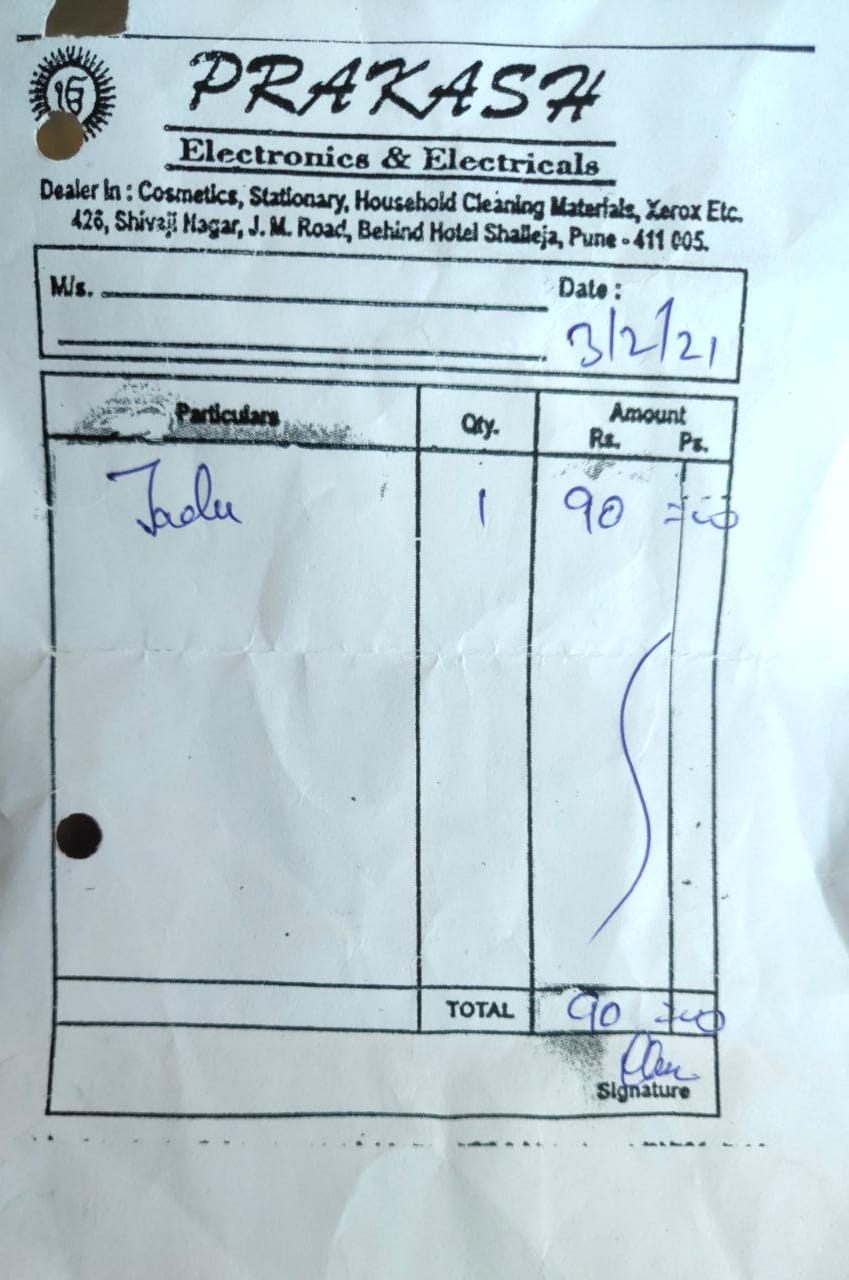 ੴ
PRAKASH
Electronics & Electricals
Dealer in : Cosmetics, Stationary, Household Cleaning Materials, Xerox Etc.
426, Shivaji Nagar, J. M. Road, Behind Hotel Shalleja, Pune - 411 005.
M/s. Date :
3/2/21
Particulars Qty. Amount
Rs. Ps.
Jadu 1 90 =00
TOTAL 90 =00
Signature